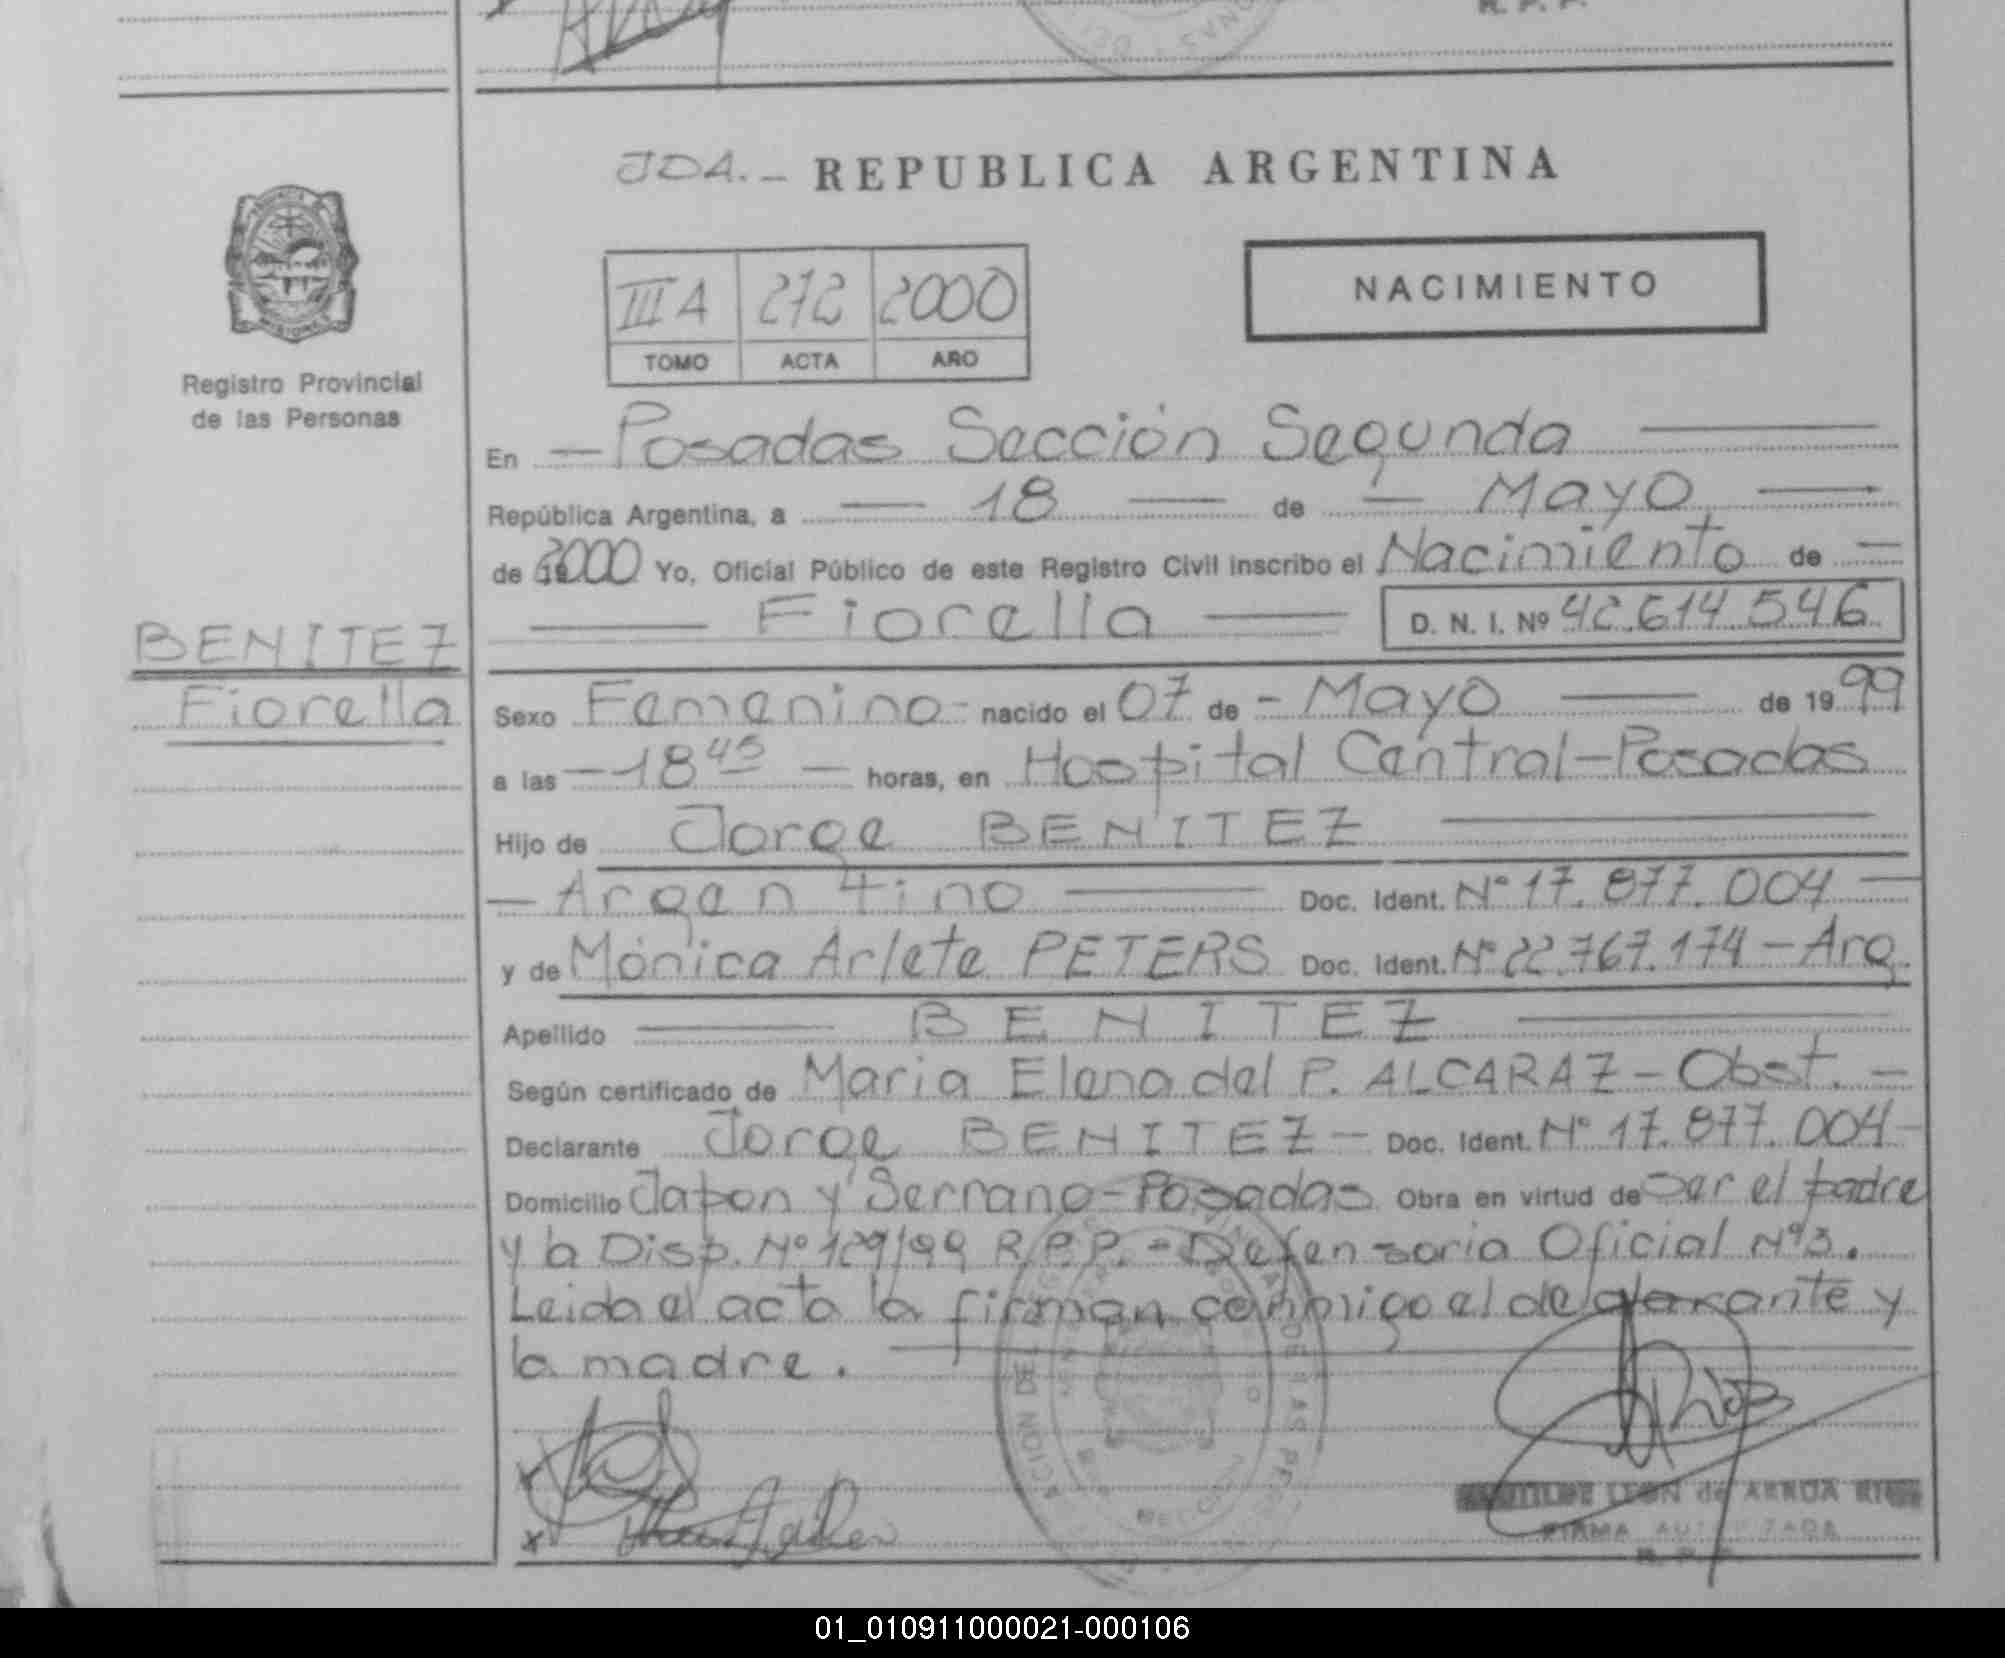 R. P. P.
JDA.- REPUBLICA ARGENTINA
NACIMIENTO
III A 272 2000
TOMO ACTA AÑO
Registro Provincial
de las Personas
En — Posadas Sección Segunda —
República Argentina, a — 18 — de — Mayo —
de 2000 Yo, Oficial Público de este Registro Civil inscribo el Nacimiento de —
— Fiorella — D. N. I. Nº 42.614.546
BENITEZ
Fiorella
Sexo Femenino - nacido el 07 de - Mayo — de 1999
a las — 18 45 — horas, en Hospital Central - Posadas
Hijo de Jorge BENITEZ —
— Argentino — Doc. Ident. Nº 17.877.004 —
y de Mónica Arlete PETERS Doc. Ident. Nº 22.767.174 - Arg.
Apellido — BENITEZ —
Según certificado de Maria Elena del P. ALCARAZ - Obst. —
Declarante Jorge BENITEZ - Doc. Ident. Nº 17.877.004 -
Domicilio Japon y Serrano - Posadas Obra en virtud de ser el padre
y la Disp. Nº 129/99 R.P.P. - Defensoria Oficial Nº 3.
Leida el acta la firman conmigo el declarante y
la madre. —
LEON de ARRUA
FIRMA AUTORIZADA
R. P. P.
01_010911000021-000106